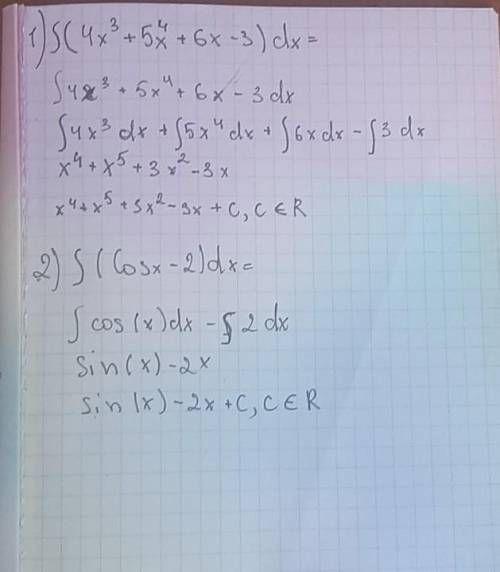 1) ∫(4x³ + 5x⁴ + 6x - 3) dx =
∫4x³ + 5x⁴ + 6x - 3 dx
∫4x³ dx + ∫5x⁴ dx + ∫6x dx - ∫3 dx
x⁴ + x⁵ + 3x² - 3x
x⁴ + x⁵ + 3x² - 3x + C, C ∈ R
2) ∫(Cosx - 2)dx =
∫cos(x)dx - ∫2 dx
sin(x) - 2x
sin(x) - 2x + C, C ∈ R